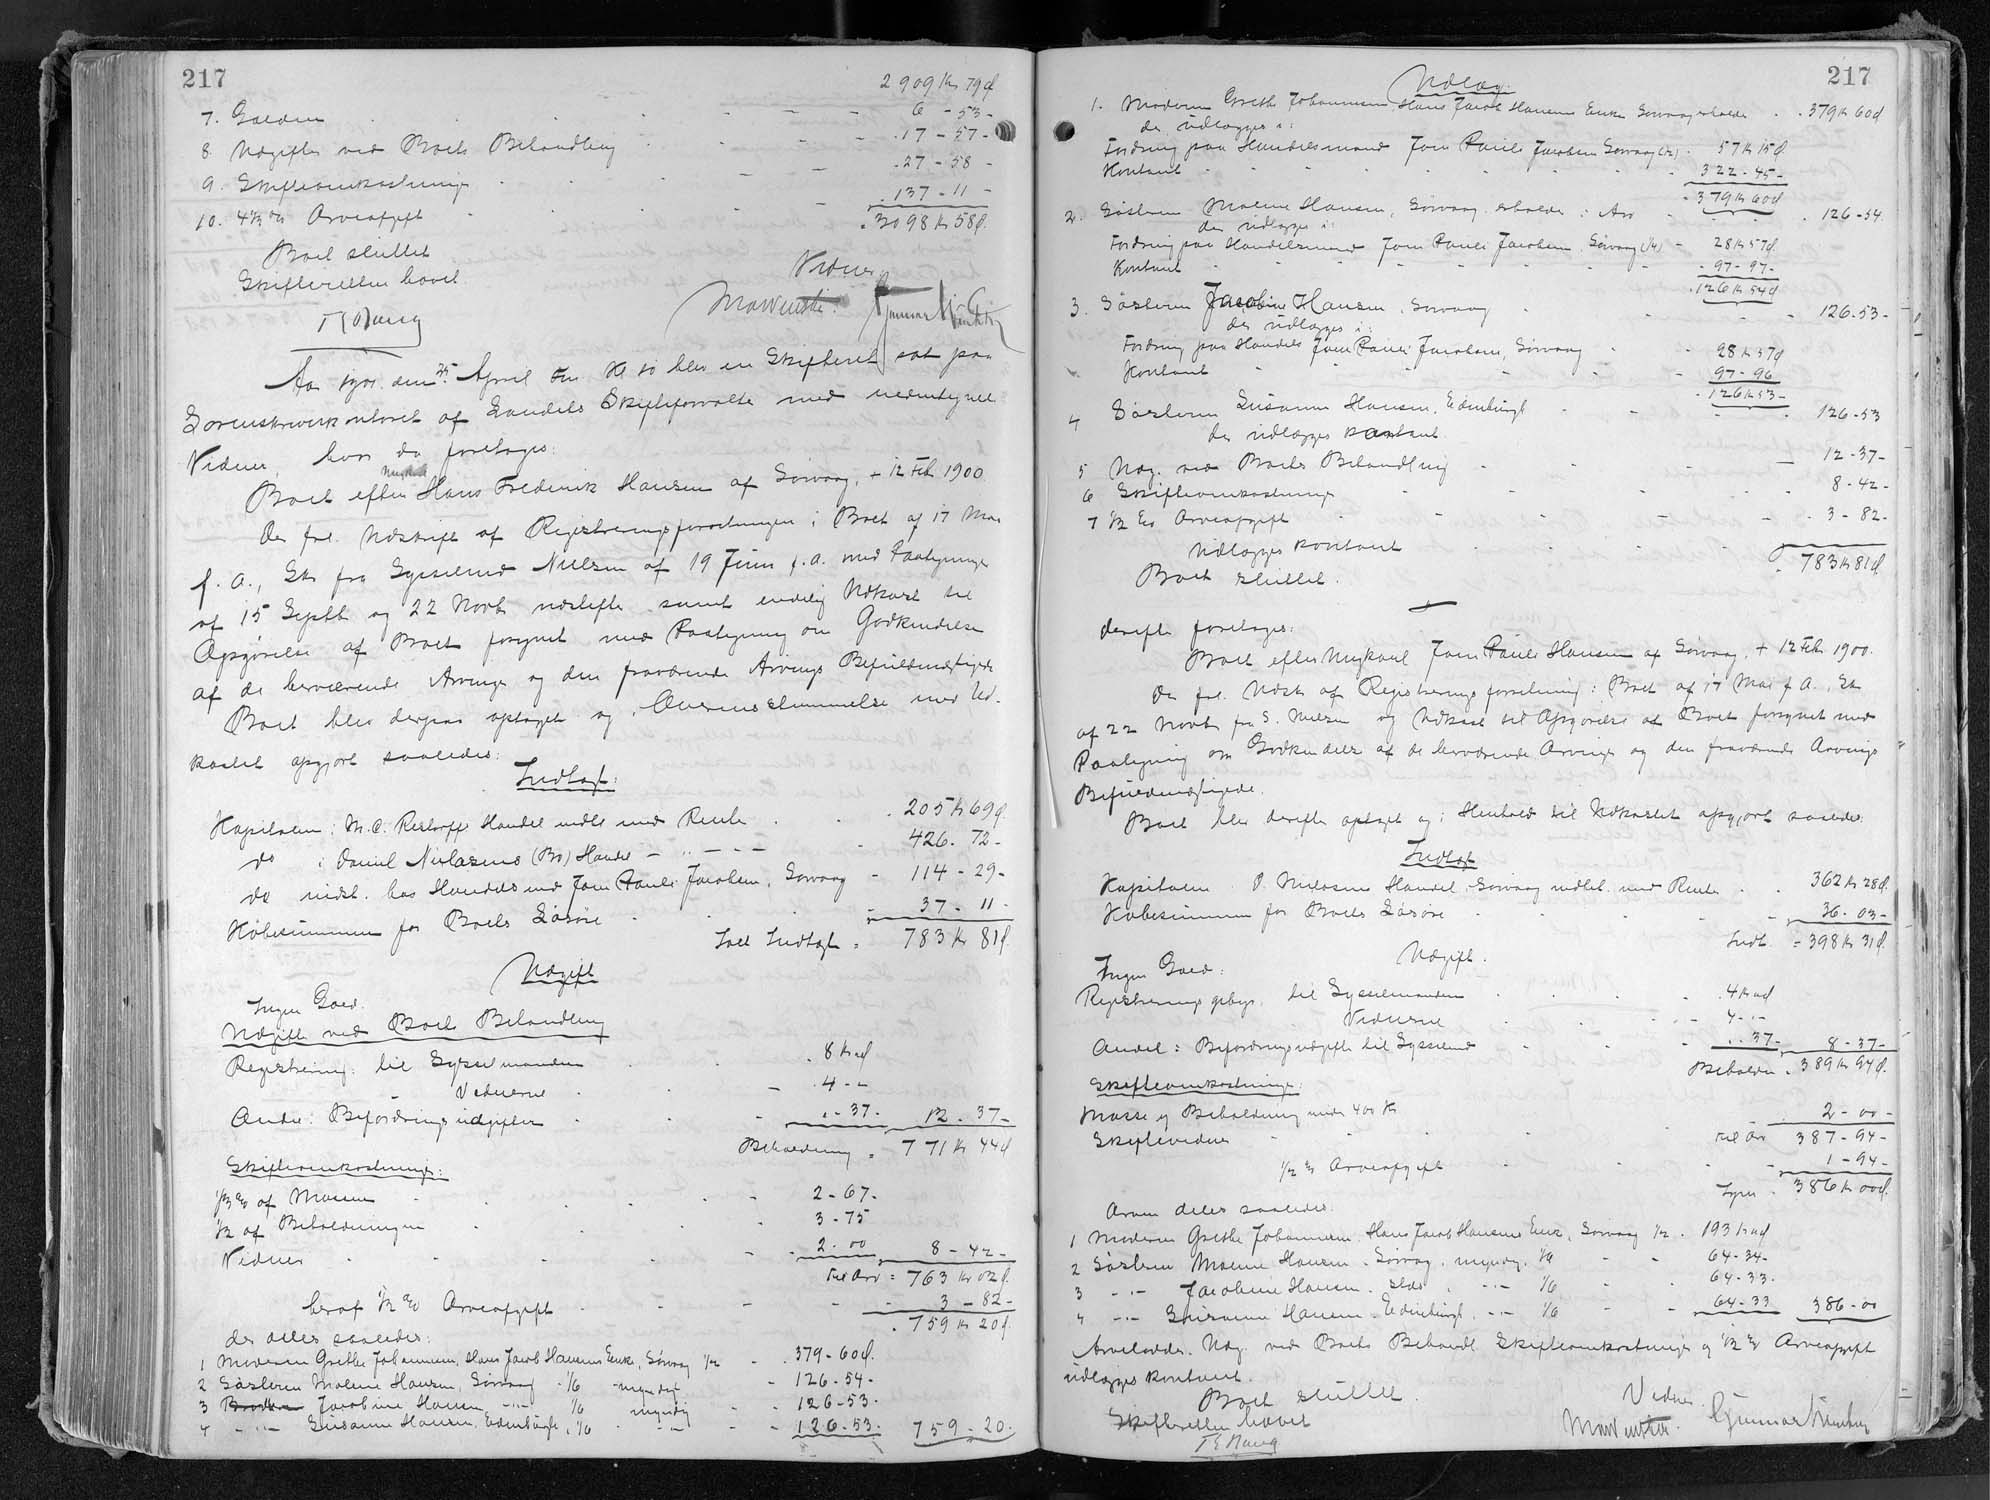 217
2909 Kr 79 Ø
7. Gælden 6 - 53 -
8. Udgifter ved Boets Behandling 17 - 57 -
9. Skifteomkostninger 27 - 58 -
10. 4% Arveafgift 137 - 11 -
3098 Kr 58 Ø.
Boet sluttet
Skifteretten hævet.
Vidner
Aar 1901 den 25. April Fm Kl 10 blev en Skifteret sat paa
Sorenskriverkontoret af Landets Skifteforvalter med undertegnede
Vidner, hvor da foretoges:
Boet efter Ungkarl Hans Frederik Hansen af Sørvaag, + 12 Feb 1900
Der frl. Udskrift af Registreringsforretningen i Boet af 17 Mai
f. A., Sk. fra Sysselmd Nielsen af 19 Juni f. a. med Paategninger
af 15 Septb og 22 Novb næstefter samt endelig Udkast til
Opgjørelse af Boet forsynet med Paategning om Godkendelse
af de herværende Arvinger og den fraværende Arvings Befuldmægtigede
Boet blev derpaa optaget og i Overensstemmelse med Ud-
kastet opgjort saaledes:
Indtægt:
Kapitalen i M. C. Restorffs Handel indtb med Rente 205 Kr 69 Ø.
do i Daniel Niclasens (Bo) Handel - " - - - 426 - 72 -
do indst. hos Handelsmd Joen Pauli Jacobsen, Sørvaag - 114 - 29 -
Købesummen for Boets Løsøre 37 - 11 -
Ialt Indtægt = 783 Kr 81 Ø.
Udgift
Ingen Gæld.
Udgifter ved Boets Behandling
Registrering: til Sysselmanden 8 Kr Ø
Vidnerne 4 - -
Andre: Befordringsudgifter " - 37 - 12 - 37 -
Beholdning = 771 Kr 44 Ø
Skifteomkostninger:
1/3 % af Massen 2 - 67 -
1/2 af Beholdningen 3 - 75
Vidner 2 - 00 8 - 42 -
til Arv = 763 Kr 02 Ø.
heraf 1/2 % Arveafgift 3 - 82 -
759 Kr 20 Ø.
der deles saaledes:
1 Moderen Grethe Johannesen, Hans Jacob Hansens Enke, Sørvaag 1/2 379 - 60 Ø.
2 Søsteren Malene Hansen, Sørvaag 1/6 myndig 126 - 54 -
3 Jacobine Hansen, - " - 1/6 myndig 126 - 53 -
4 - " - Susanne Hansen, Edinburgh, 1/6 - " - 126 - 53 - 759 - 20 -
217
Udlæg.
1. Moderen Grethe Johannesen Hans Jacob Hansens Enke Sørvaag erholder 379 Kr 60 Ø
der udlægges i:
Fordring paa Handelsmand Joen Pauli Jacobsen Sørvaag (1/2) 57 Kr 15 Ø.
Kontant 322 - 45 -
379 Kr 60 Ø
2. Søsteren Malene Hansen, Sørvaag erholder i Arv 126 - 54 -
der udlægges i:
Fordring paa Handelsmand Joen Pauli Jacobsen, Sørvaag (1/4) - 28 Kr 57 Ø.
Kontant 97 - 97 -
126 Kr 54 Ø
3. Søsteren Jacobine Hansen, Sørvaag 126 - 53 -
der udlægges i:
Fordring paa Handels Joen Pauli Jacobsen, Sørvaag 28 Kr 57 Ø
Kontant 97 - 96
126 Kr 53 -
4 Søsteren Susanne Hansen, Edinburgh 126 - 53
der udlægges kontant
5 Udg. ved Boets Behandling 12 - 37 -
6 Skifteomkostninger 8 - 42 -
7 1/2 % Arveafgift 3 - 82 -
Udlægges kontant
783 Kr 81 Ø.
Boet sluttet.
derefter foretoges:
Boet efter Ungkarl Joen Pauli Hansen af Sørvaag, + 12 Feb 1900.
Der frl. Udsk. af Registreringsforretning i Boet af 17 Mai f. A., Sk.
af 22 Novb fra S. Nielsen og Udkast til Opgjørelse af Boet forsynet med
Paategning om Godkendelse af de herværende Arvinger og den fraværende Arvings
Befuldmægtigede.
Boet blev derefter optaget og i Henhold til Udkastet opgjort saaledes:
Indtægt
Kapitalen i D. Niclasens Handel Sørvaag indtb. med Rente 362 Kr 28 Ø.
Købesummen for Boets Løsøre 36 - 03 -
Indt. = 398 Kr 31 Ø.
Udgift.
Ingen Gæld.
Registreringsgebyr. til Sysselmanden 4 Kr Ø
Vidnerne 4 - " -
Andel i Befordringsudgifter til Sysselmd " - 37 - 8 - 37 -
Beholdn. 389 Kr 94 Ø.
Skifteomkostninger:
Masse og Beholdning under 400 Kr
Skiftevidner 2 - 00 -
til Arv 387 - 94 -
1/2 % Arveafgift 1 - 94 -
386 Kr 00 Ø.
Arven deles saaledes:
1 Moderen Grethe Johannesen, Hans Jacob Hansens Enke, Sørvaag 1/2 193 Kr Ø
2 Søsteren Malene Hansen, Sørvaag, myndig, 1/6 64 - 34 -
3 - " - Jacobine Hansen - " - 1/6 64 - 33 -
4 - " - Susanne Hansen, Edinburgh, - " - 1/6 64 - 33 386 - 00
Arvelodder, Udg. ved Boets Behandl. Skifteomkostninger og 1/2 % Arveafgift
udlægges kontant.
Boet sluttet.
Skifteretten hævet
Vidner